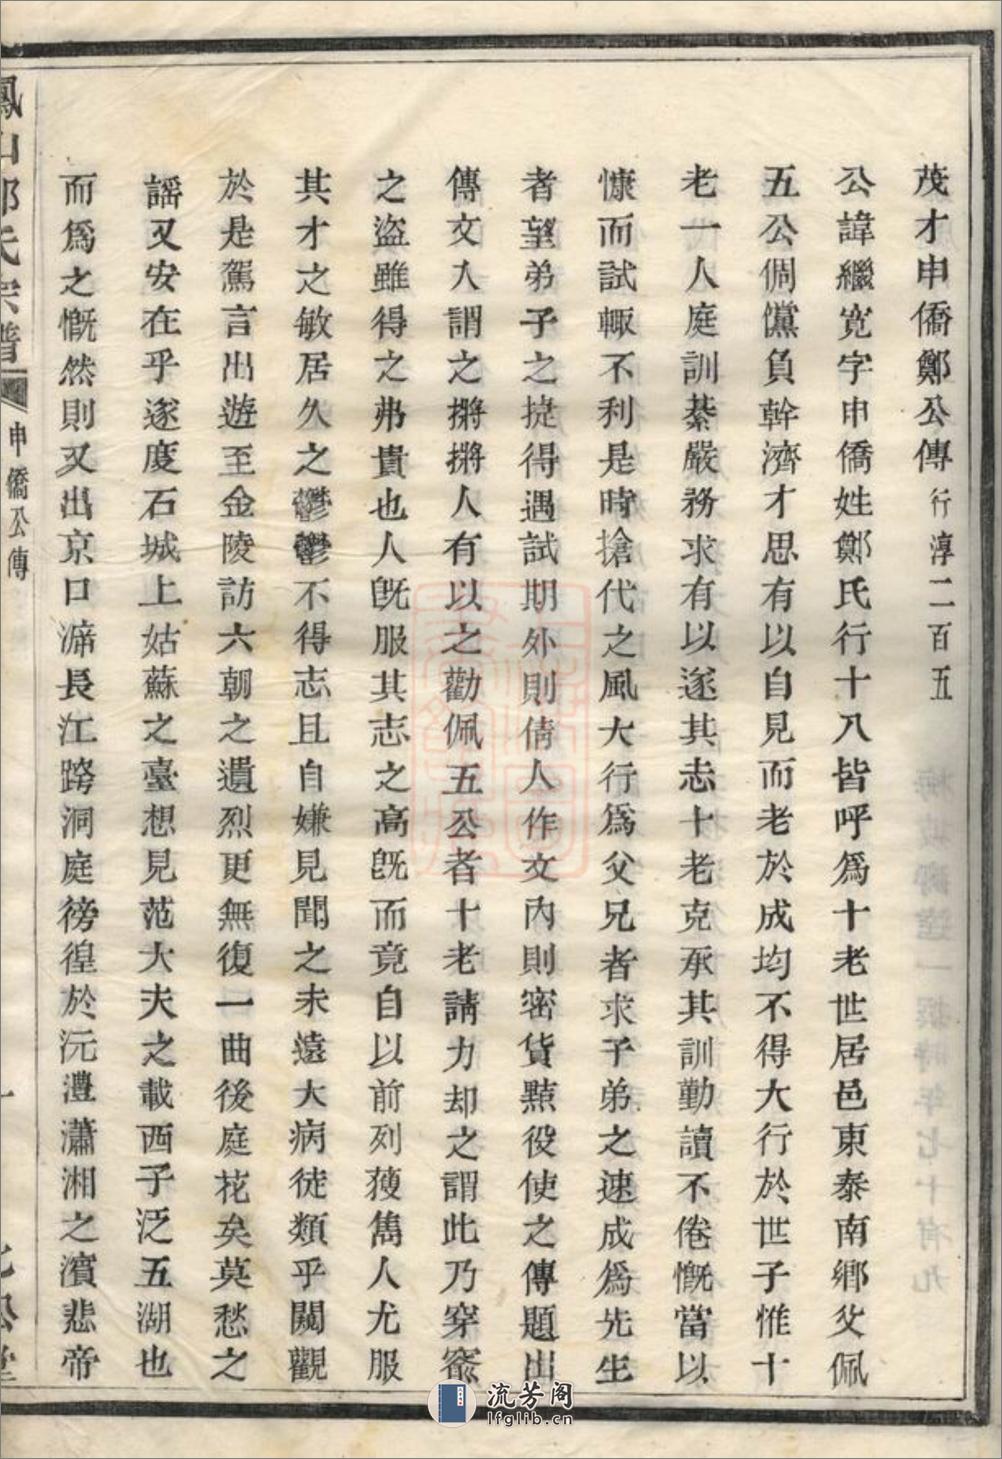 茂才申僑鄭公傳 行淳二百五
公諱繼寬字申僑姓鄭氏行十八皆呼爲十老世居邑東泰南鄉父佩
五公倜儻負幹濟才思有以自見而老於成均不得大行於世子惟十
老一人庭訓綦嚴務求有以遂其志十老克承其訓勤讀不倦慨當以
慷而試輙不利是時搶代之風大行爲父兄者求子弟之速成爲先生
者望弟子之捷得遇試期外則倩人作文內則密貨黠役使之傳題出
傳文入謂之搿搿人有以之勸佩五公者十老請力却之謂此乃穿窬
之盜雖得之弗貴也人旣服其志之高旣而竟自以前列獲雋人尤服
其才之敏居久之鬱鬱不得志且自嫌見聞之未遠大病徒類乎闚觀
於是駕言出遊至金陵訪六朝之遺烈更無復一曲後庭花矣莫愁之
謡又安在乎遂度石城上姑蘇之臺想見范大夫之載西子泛五湖也
而爲之慨然則又出京口泝長江跨洞庭徬徨於沅澧瀟湘之濱悲帝
鳳山鄭氏宗譜 申僑公傳 一
流芳阁
lfglib.cn